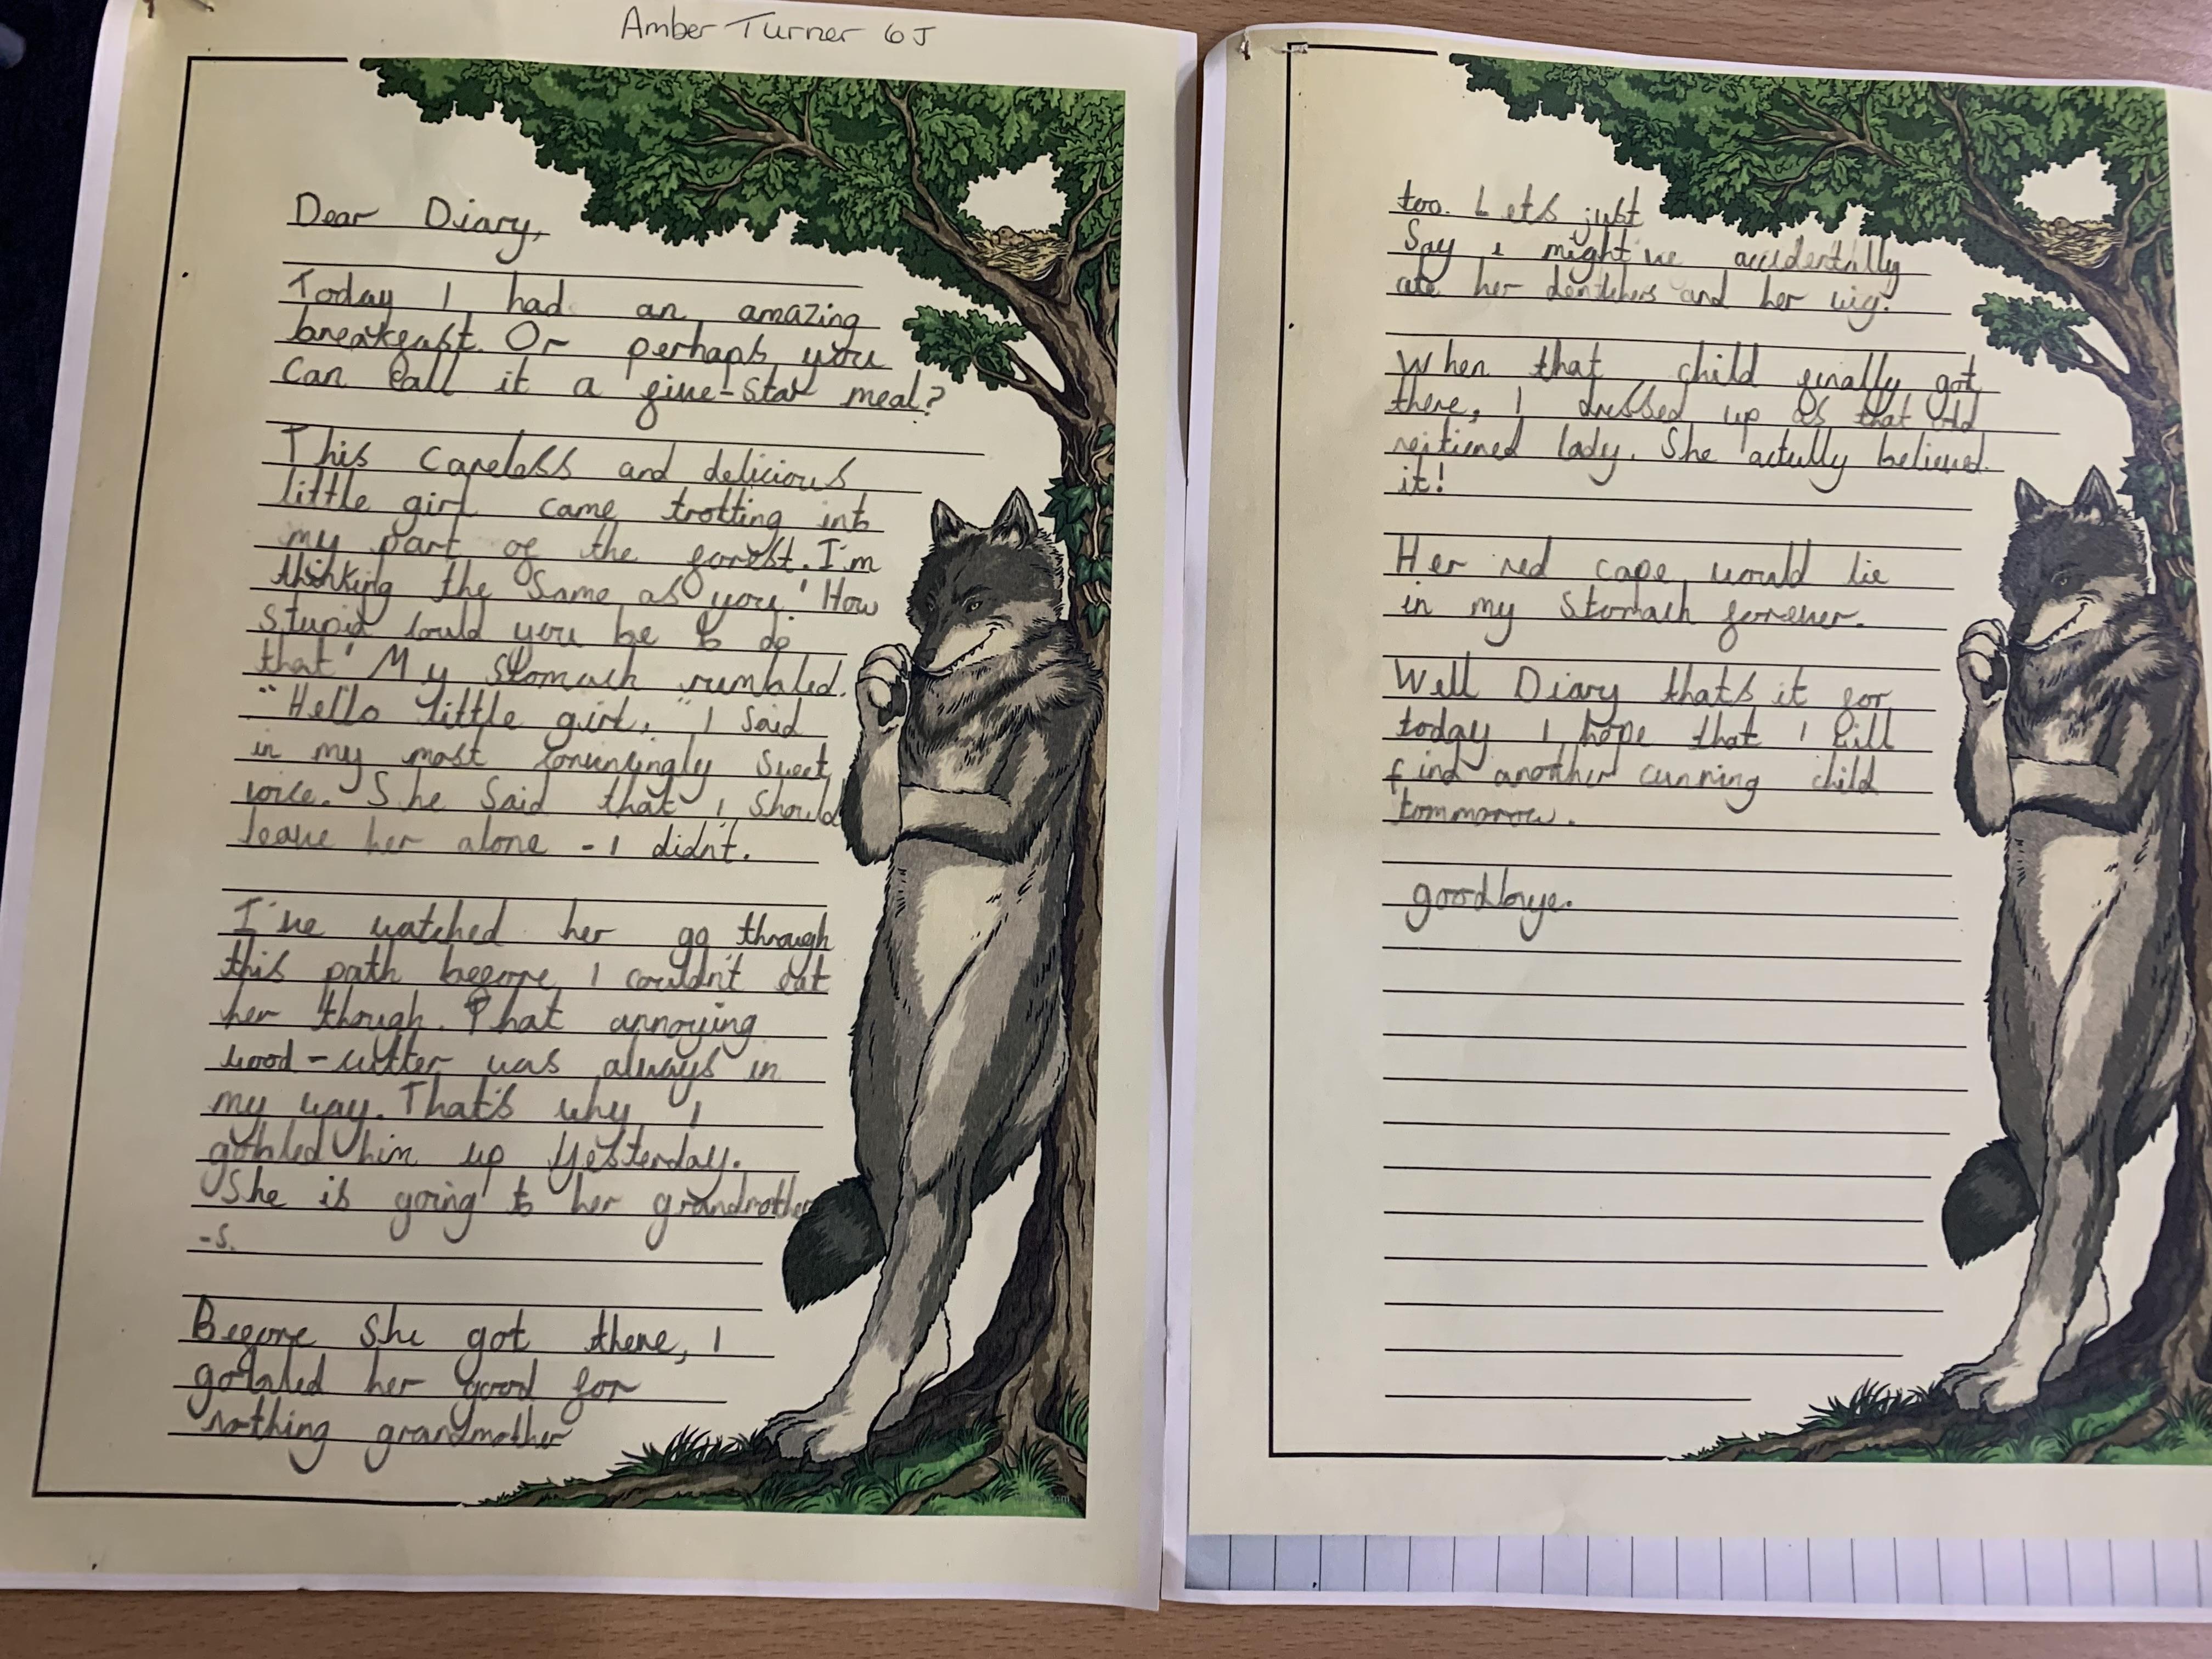 Amber Turner 6J
Dear Diary,
Today I had an amazing
breakfast. Or perhaps you
can call it a five-star meal?
This careless and delicious
little girl came trotting into
my part of the forest. I'm
thinking the same as you, 'How
stupid could you be to do
that' My stomach rumbled.
"Hello little girl," I said
in my most convincingly sweet
voice. She said that I should
leave her alone - I didn't.
I've watched her go through
this path before, I couldn't eat
her though. That annoying
wood-cutter was always in
my way. That's why I
gobled him up yesterday.
She is going to her grandmother
-s.
Before she got there, I
gobbled her good for
nothing grandmother
too. Lets just
Say i might've accidentally
ate her dentchers and her wig.
When that child finally got
there, I dressed up as that old
reitiered lady. She actully believed
it!
Her red cape would lie
in my stomach forever.
Well Diary that's it for
today I hope that I will
find another cunning child
tommorow.
goodbye.